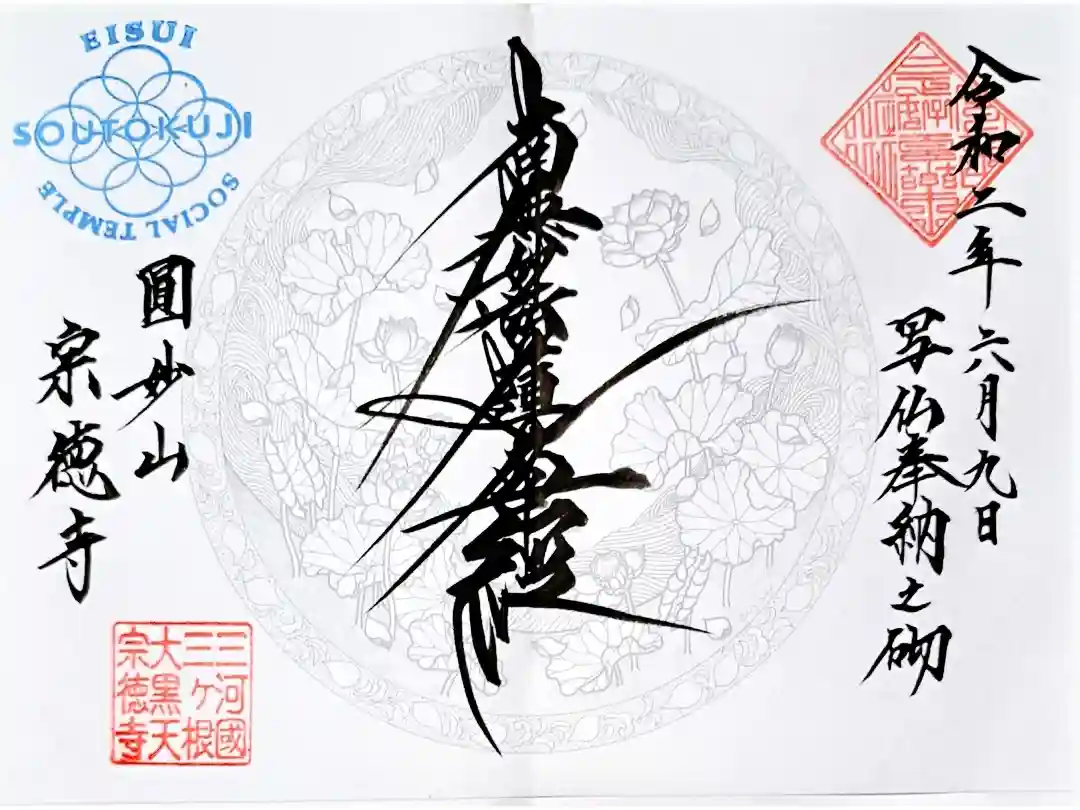 令和二年六月九日
写仏奉納之砌
南無妙法蓮華経
圓妙山
宗徳寺
EISUI
SOUTOKUJI
SOCIAL TEMPLE
三河國
三ヶ根
大黒天
宗徳寺